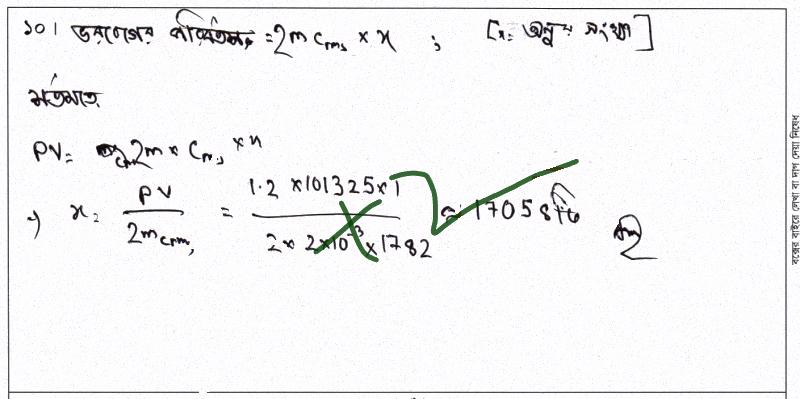 ১০। ভরবেগের পরিবর্তন = 2m c_rms × x ; [x = অনুর সংখ্যা]
শর্তমতে
PV = 2m × c_rms × x
⇒ x = PV / 2m c_rms = 1.2 × 101325 × 1 / 2 × 2×10⁻³ × 1782 ≈ 17058 টি
বক্সের বাইরে লেখা বা দাগ দেয়া নিষেধ